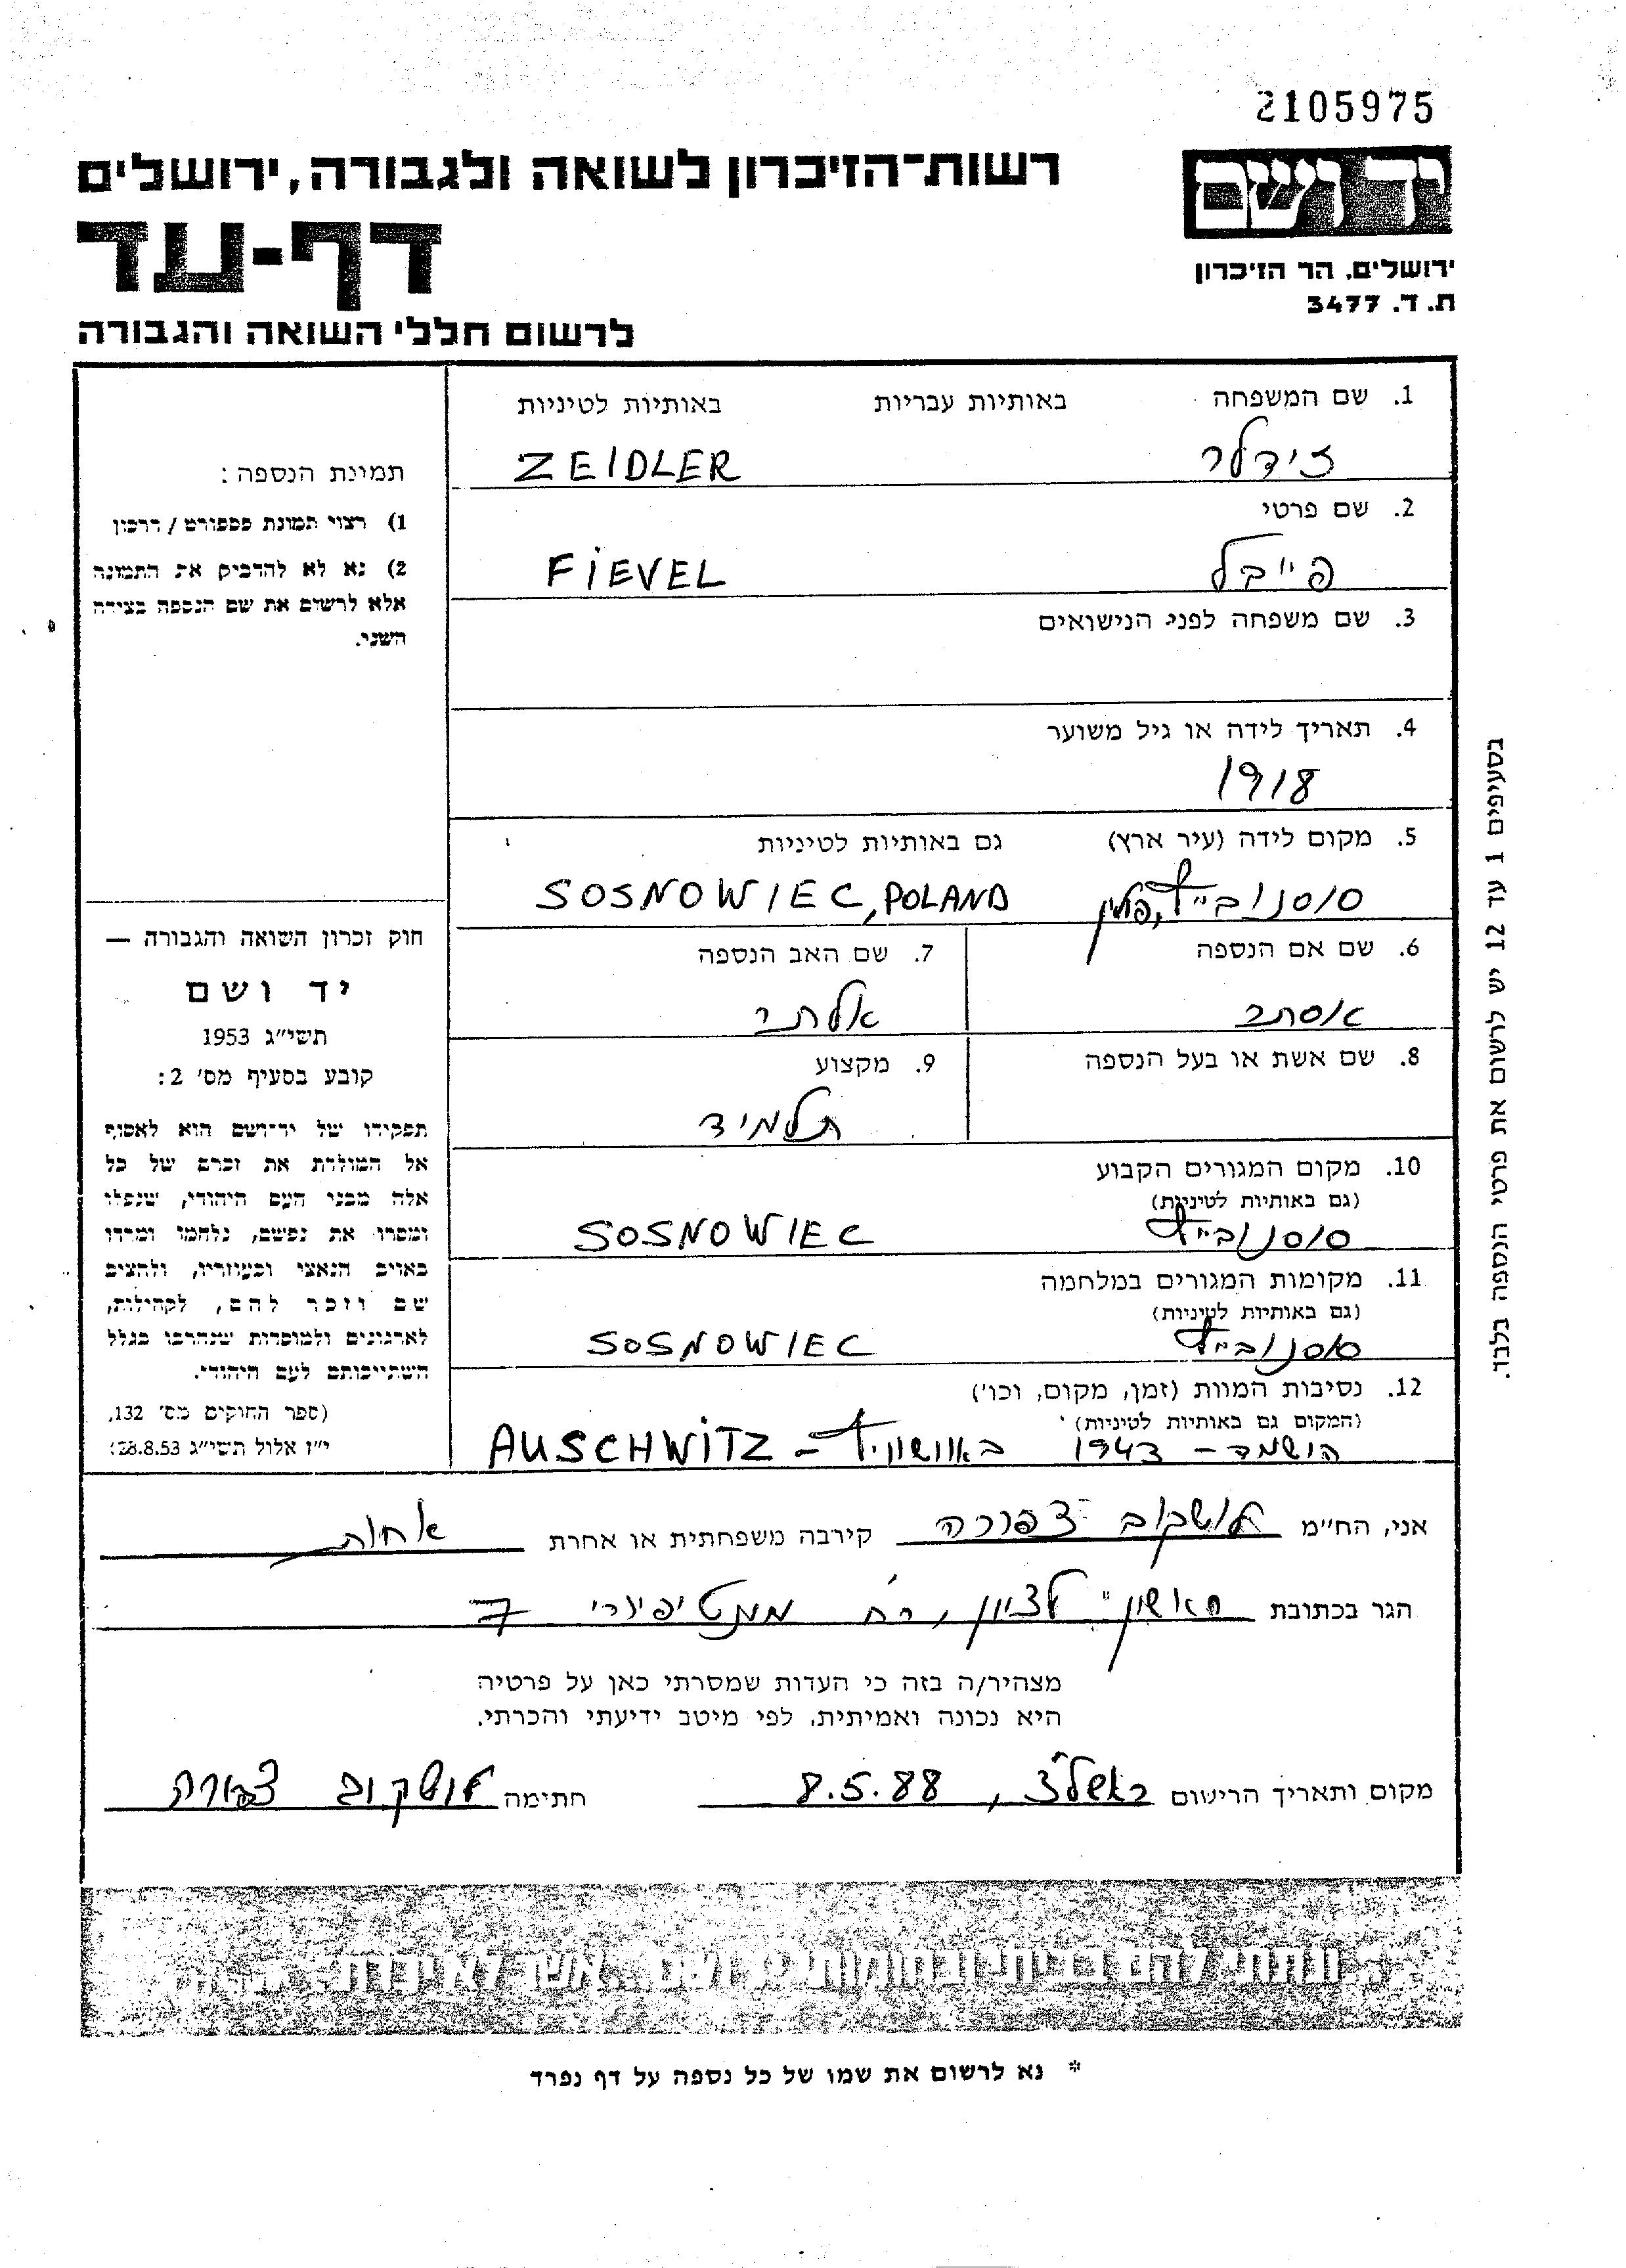 2105975
יד ושם
רשות־הזיכרון לשואה ולגבורה, ירושלים
דף-עד
ירושלים, הר הזיכרון
ת. ד. 3477
לרשום חללי השואה והגבורה
1. שם המשפחה באותיות עבריות באותיות לטיניות
זידלר ZEIDLER
2. שם פרטי
פייבל FIEVEL
3. שם משפחה לפני הנישואים
4. תאריך לידה או גיל משוער
1918
5. מקום לידה (עיר ארץ) גם באותיות לטיניות
סוסנוביץ, פולין SOSNOWIEC, POLAND
6. שם אם הנספה 7. שם האב הנספה
אסתר אלתר
8. שם אשת או בעל הנספה 9. מקצוע
תלמיד
10. מקום המגורים הקבוע
(גם באותיות לטיניות)
סוסנוביץ SOSNOWIEC
11. מקומות המגורים במלחמה
(גם באותיות לטיניות)
סוסנוביץ SOSNOWIEC
12. נסיבות המוות (זמן, מקום, וכו')
(המקום גם באותיות לטיניות)
הושמד – 1943 באושוויץ – AUSCHWITZ
תמונת הנספה:
1) רצוי תמונת פספורט / דרכון
2) נא לא להדביק את התמונה
אלא לרשום את שם הנספה בצידה
השני.
חוק זכרון השואה והגבורה —
יד ושם
תשי״ג 1953
קובע בסעיף מס' 2:
תפקידו של יד־ושם הוא לאסוף
אל המולדת את זכרם של כל
אלה מבני העם היהודי, שנפלו
ומסרו את נפשם, נלחמו ומרדו
באויב הנאצי ובעוזריו, ולהציב
שם וזכר להם, לקהילות,
לארגונים ולמוסדות שנחרבו בגלל
השתייכותם לעם היהודי.
(ספר החוקים מס' 132,
י״ז אלול תשי״ג 28.8.53)
בסעיפים 1 עד 12 יש לרשום את פרטי הנספה בלבד.
אני, הח״מ צפורה קירבה משפחתית או אחרת אחות
הגר בכתובת ראשון לציון, רח' מונטיפיורי 7
מצהיר/ה בזה כי העדות שמסרתי כאן על פרטיה
היא נכונה ואמיתית, לפי מיטב ידיעתי והכרתי.
מקום ותאריך הרישום ראשל״צ, 8.5.88 חתימה צפורה
...ונתתי להם בביתי ובחומותי יד ושם... אשר לא יכרת.
* נא לרשום את שמו של כל נספה על דף נפרד